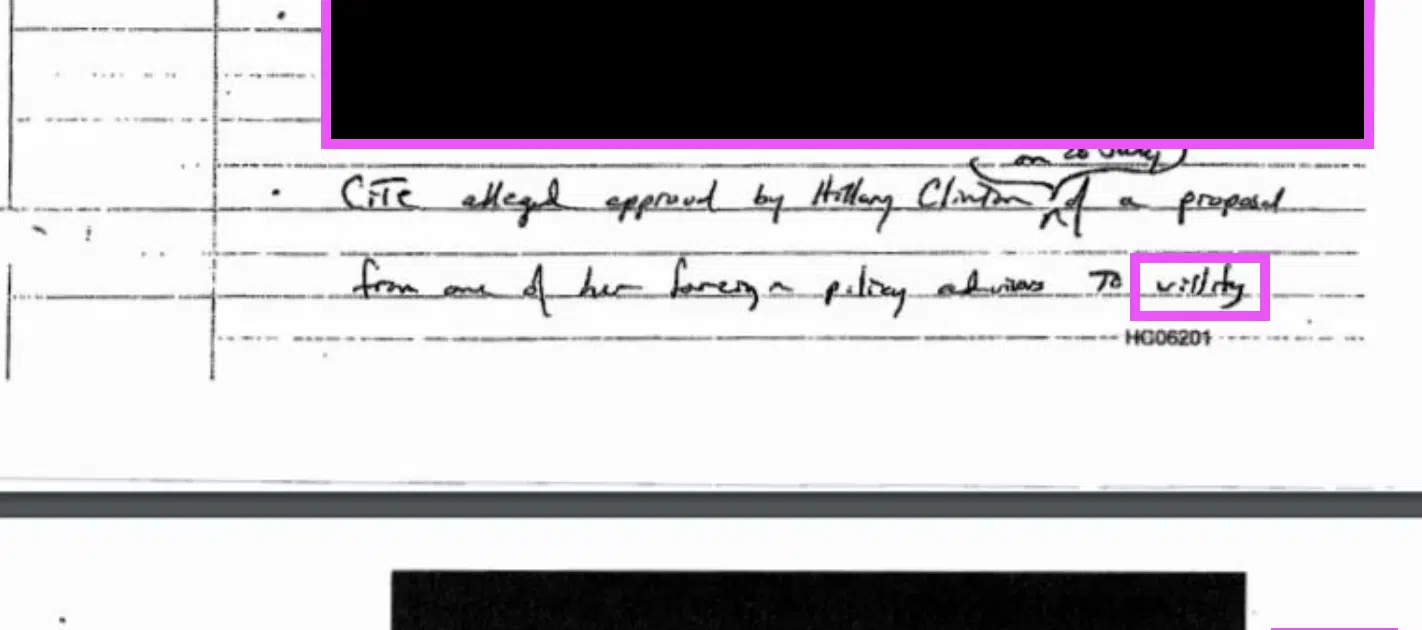 on 28 July
• CiTe alleged approval by Hillary Clinton of a proposal
from one of her foreign policy advisors To villify
HC06201